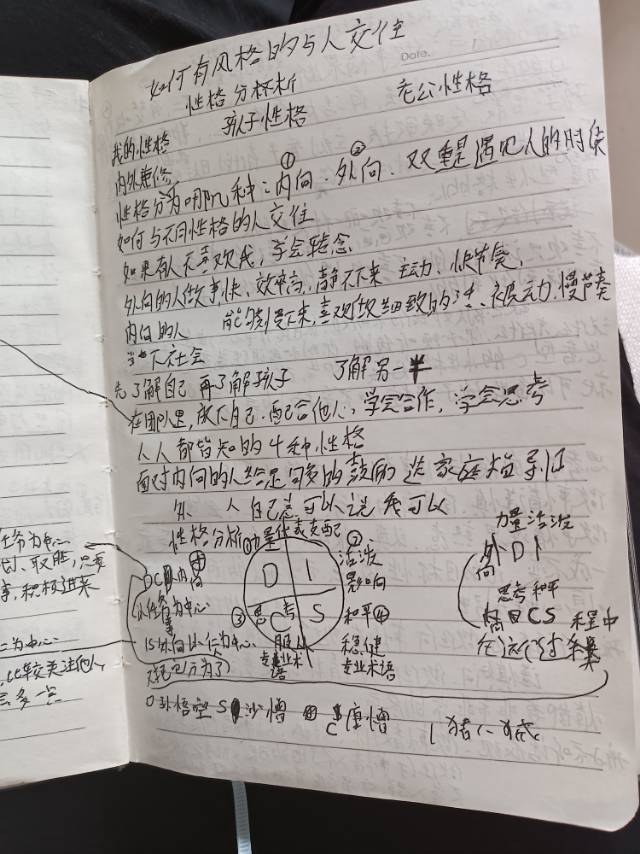 如何有风格的与人交往
Date.
性格分析
孩子性格 老公性格
我的性格
内外兼修
① ②
性格分为哪几种:内向、外向、双重 遇见人的时候
如何与不同性格的人交往
如果有人不喜欢我,学会转念
外向的人做事快、效率高,静不下来 主动、快节奏,
内向的人 能够慢下来,喜欢做细致的活、被动、慢节奏
当下社会
先了解自己 再了解孩子 了解另一半
在团队里,放下自己、配合他人,学会合作,学会思考
人人都皆知的4种性格
面对内向的人给足够多的鼓励 送家庭指导证
外 人自己总可以说我可以
性格分析 力量 代表支配
力量活泼
D I
② 活泼
影响
外向 D I
DC 内向
任务为中心
以任务为中心
③ 思考 C S
和平④
思考和平
CS 程中
IS外向以人为中心
服从 稳健
在这个过
专业术语 专业术语
为中心
D 孙悟空 S 沙僧 C 唐僧 I 猪八戒